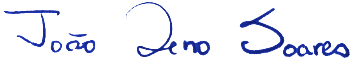 João Zeno Soares